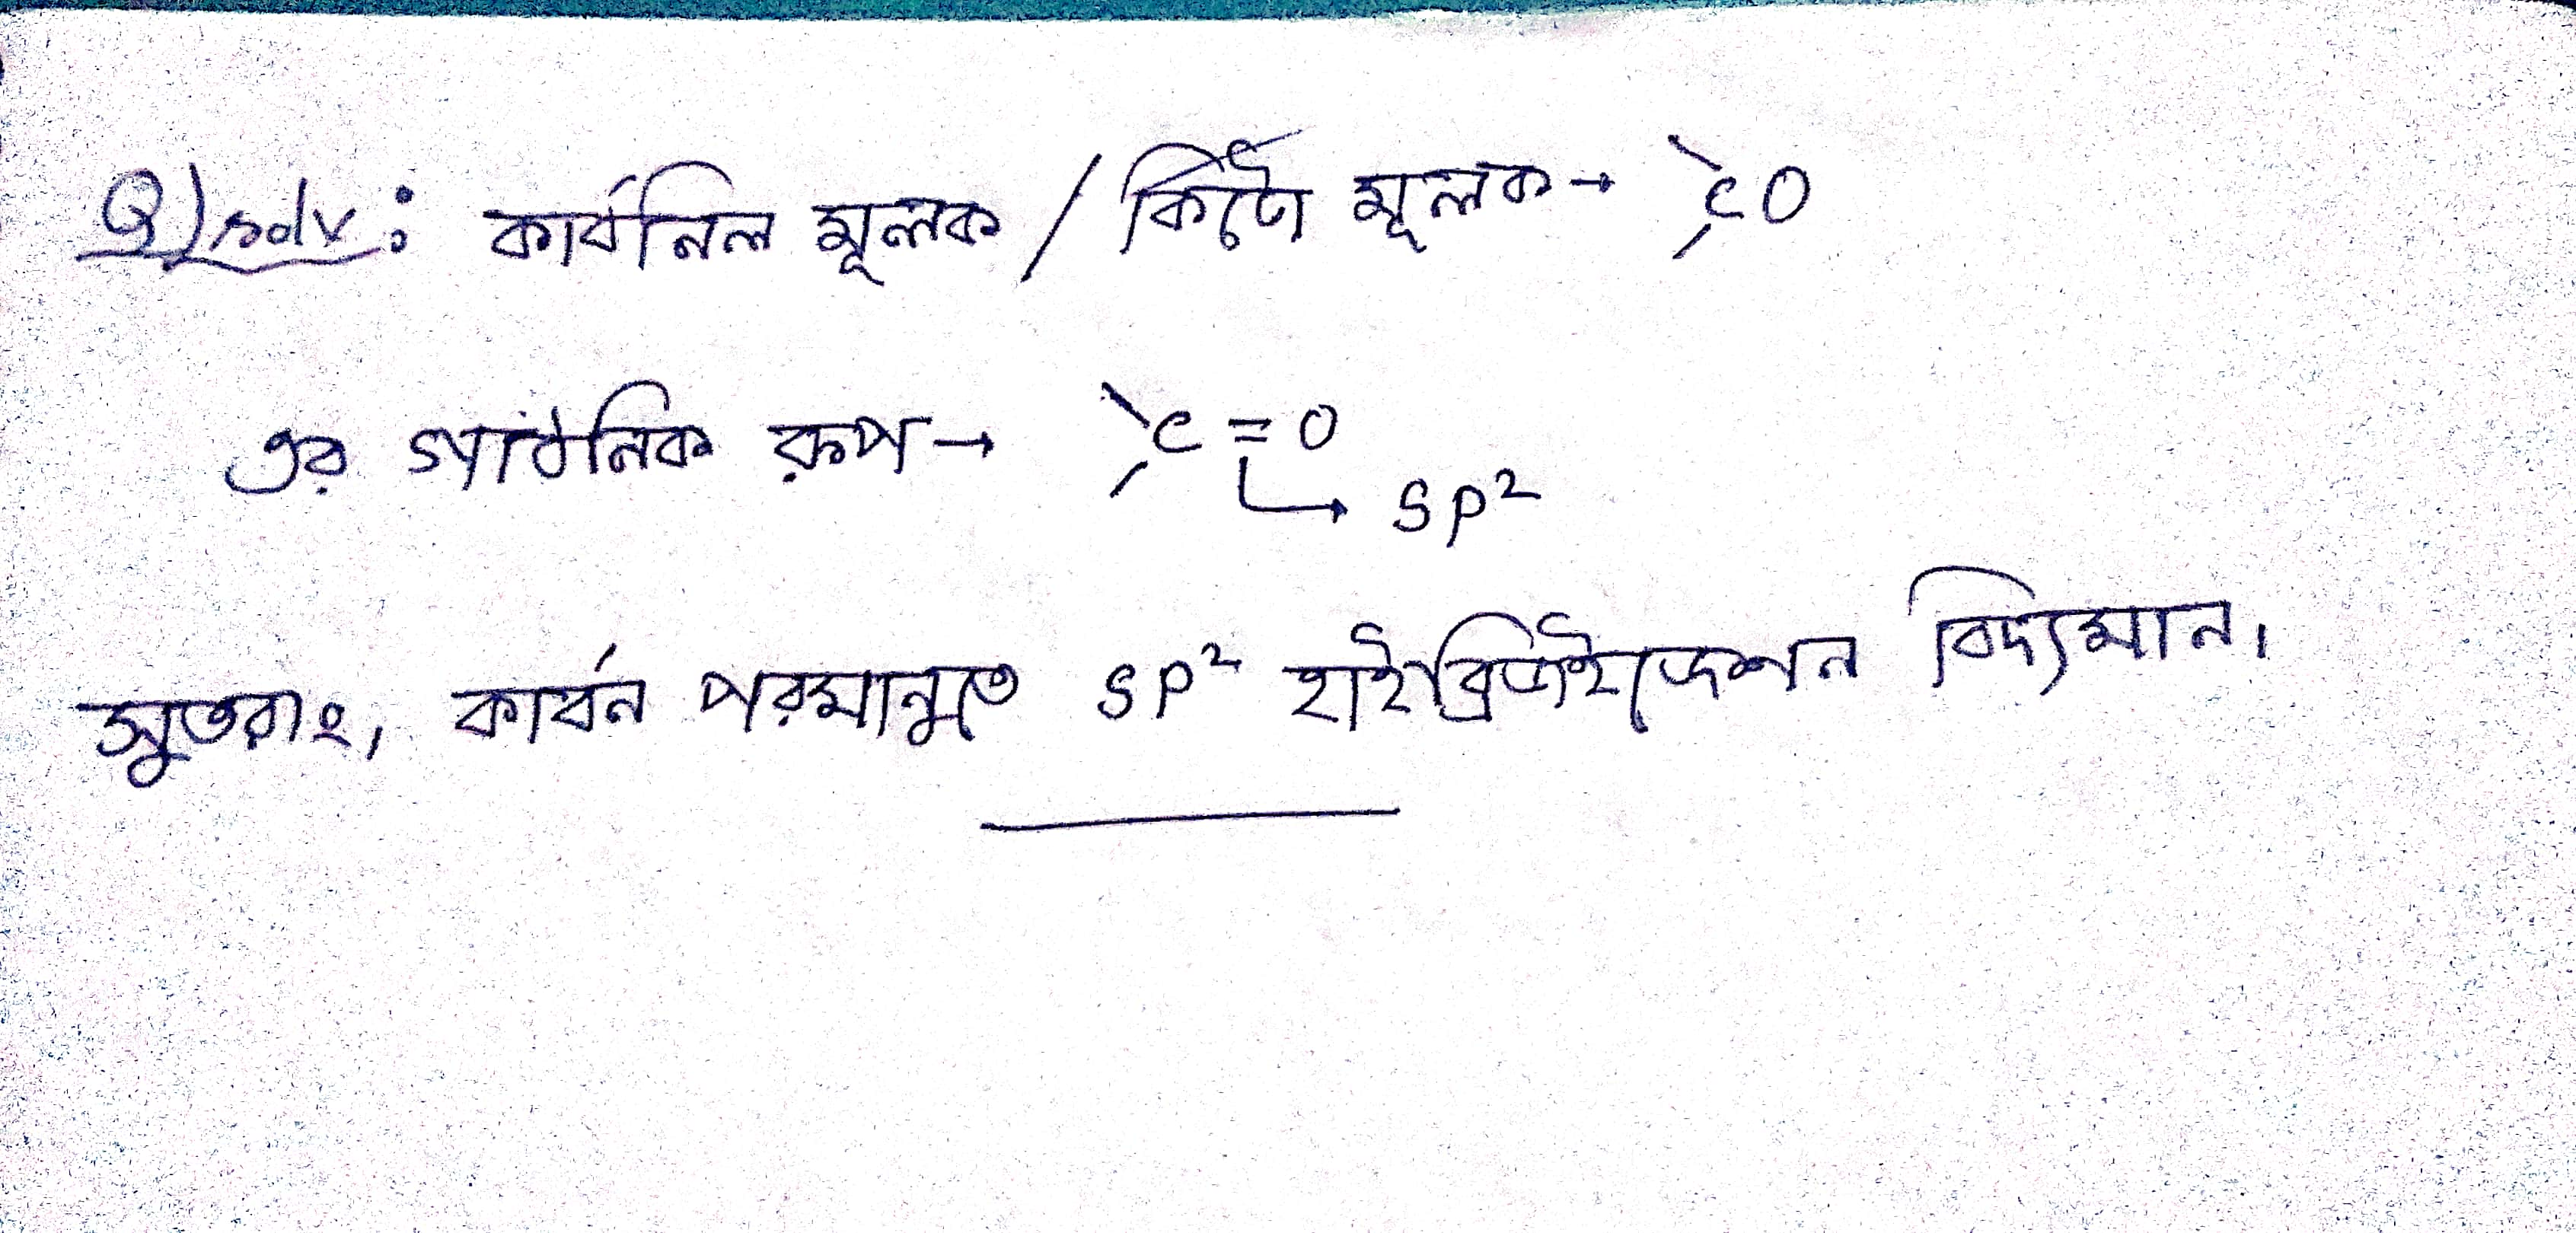 Q) solv: কার্বনিল মূলক / কিটো মূলক → >CO
এর গাঠনিক রূপ → >C = O
↳ SP²
সুতরাং, কার্বন পরমানুতে SP² হাইব্রিডাইজেশন বিদ্যমান।